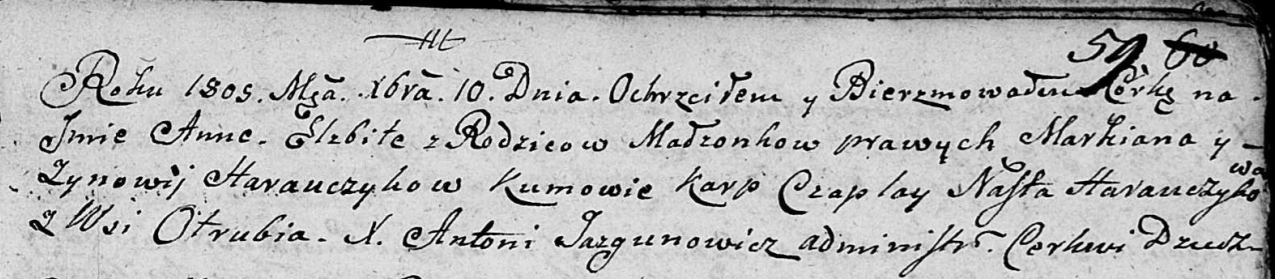 59 60
Roku 1805. Mca. Xbra. 10. Dnia. Ochrzciłem y Bierzmowałem Córkę na
Jmie Anne. Elzbite z Rodzicow Małzonkow prawych Markiana y
Zynowij Harauczykow Kumowie Karp Czaplay Nasta Harauczykowa
z Wsi Otrubia. X. Antoni Jazgunowicz administr. Cerkwi